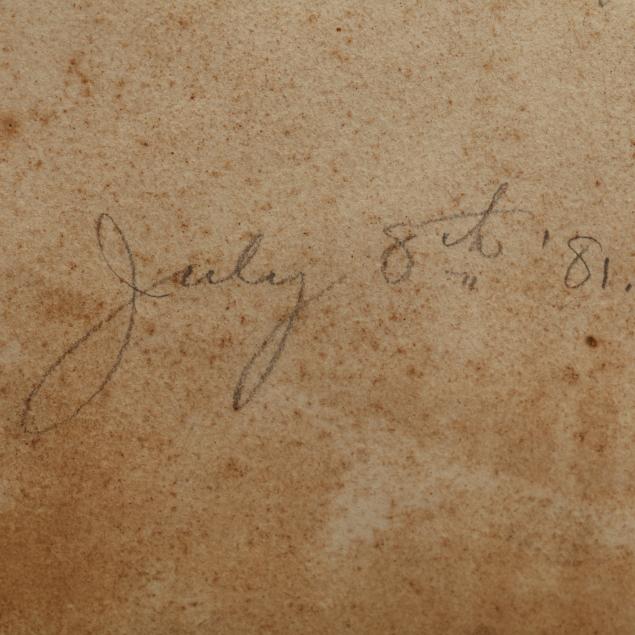 July 8th '81.